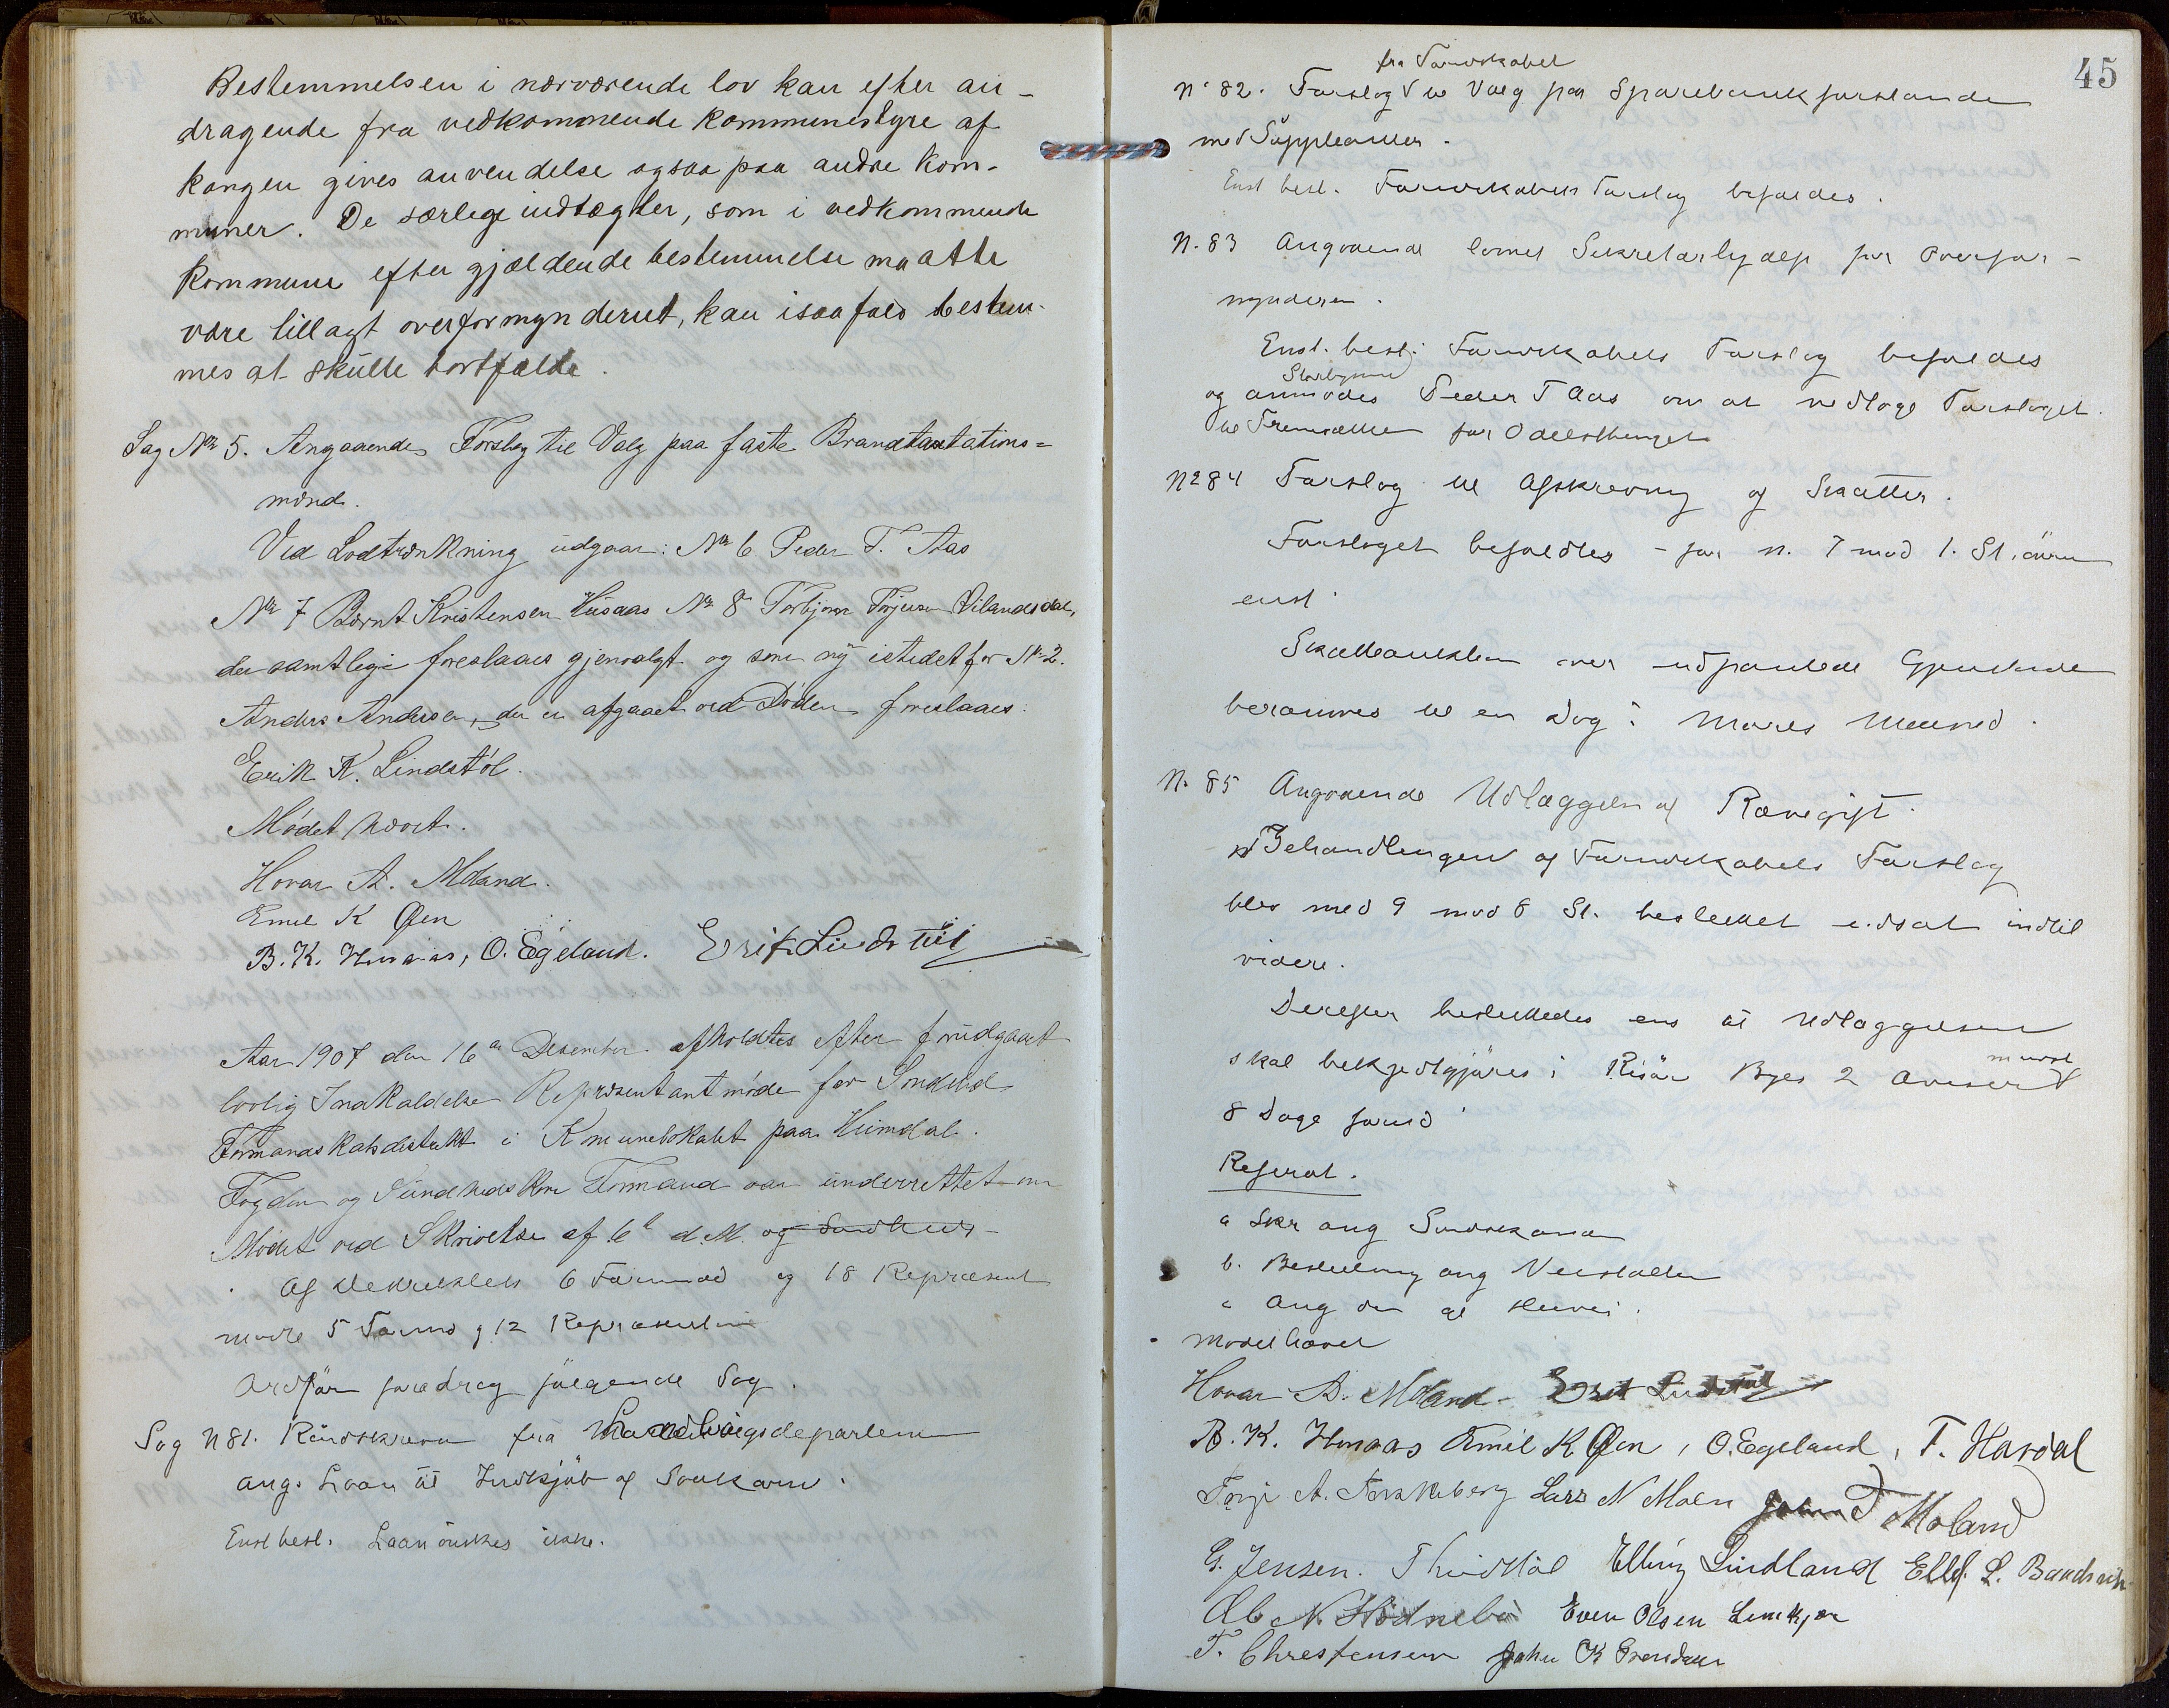 Bestemmelsen i nærværende lov kan efter an-
dragende fra vedkommende kommunestyre af
kongen gives anvendelse ogsaa paa andre kom-
muner. De særlige indtægter, som i vedkommende
kommune efter gjældende bestemmelse maatte
være tillagt overformynderiet, kan isaafald bestem-
mes at skulle bortfalde.
Sag No 5. Angaaende Forslag til Valg paa faste Brandtaxtations=
mænd.
Ved Lodtrækning udgaar: No 6 Peder T. Aas
No 7 Bernt Kristensen Husaas No 8 Torbjørn Terjesen Vilandsdal,
der samtlige foreslaaes gjenvalgt og som ny istedet for No 2.
Anders Andersen, der er afgaaet ved Døden foreslaaes:
Erik K. Lindstøl.
Mødet hævet.
Hovar A. Moland.
Emil K Øen
B. K. Husaas, O. Egeland. Erik Lindstøl
Aar 1907 den 16de Desember afholdtes efter forudgaaet
lovlig Indkaldelse Repræsentantmøde for Søndeled
Formandskabsdistrikt i Kommunelokalet paa Heimdal.
Fogden og Sundheds Kom Formand var underrettet om
Mødet ved Skrivelse af 6te d.M. og Sundheds-
Af Distriktets 6 Formænd og 18 Repræsent
mødte 5 Formd og 12 Repræsentan
Ordfør foredrag følgende Sag.
Sag N 81. Rundskriven fra Landbrugsdepartem
ang. Laan til Indkjøb af Saakorn.
Enst besl. Laan ønskes ikke.
45
fra Formskabet
No 82. Forslag til Valg paa Sparebankforstander
med Suppleanter.
Enst besl. Formskabets Forslag bifaldes.
N. 83 Angaaende lønnet Sekretærhjælp for Overfor-
mynderen.
Enst. besl: Formskabets Forslag bifaldes
Storthgmd
og anmodes Peder T Aas om at vedtage Forslaget
til Fremsættelse for Odelsthinget
No 84 Forslag til Afskrivning af Skatter.
Forslaget bifaldtes - for n. 7 mod 1. St. øvrige
enst.
Skatteauktion over udpantede Gjenstande
berammes til en Dag i Marts Maaned.
N. 85 Angaaende Udlæggelse af Rævegift.
Behandlingen af Formskabets Forslag
blev med 9 mod 8 St. besluttet udsat indtil
videre.
Derefter besluttedes ens at Udlæggelsen
skal bekjendtgjøres i Risør Byes 2 Aviser mindst
8 Dage forud
Referat.
a Skr ang
b. Beslutning ang
c Ang den
Mødet hævet
Hovar A. Moland - Erik Lindstøl
B. K. Husaas Emil K. Øen, O. Egeland, T. Havdal
Terje A. Lars N Moen Moland
G. Jensen. T Lindstøl Elling Lindland Ellef. L.
Ole N. Hødnebø Even Olsen
T. Christensen John K